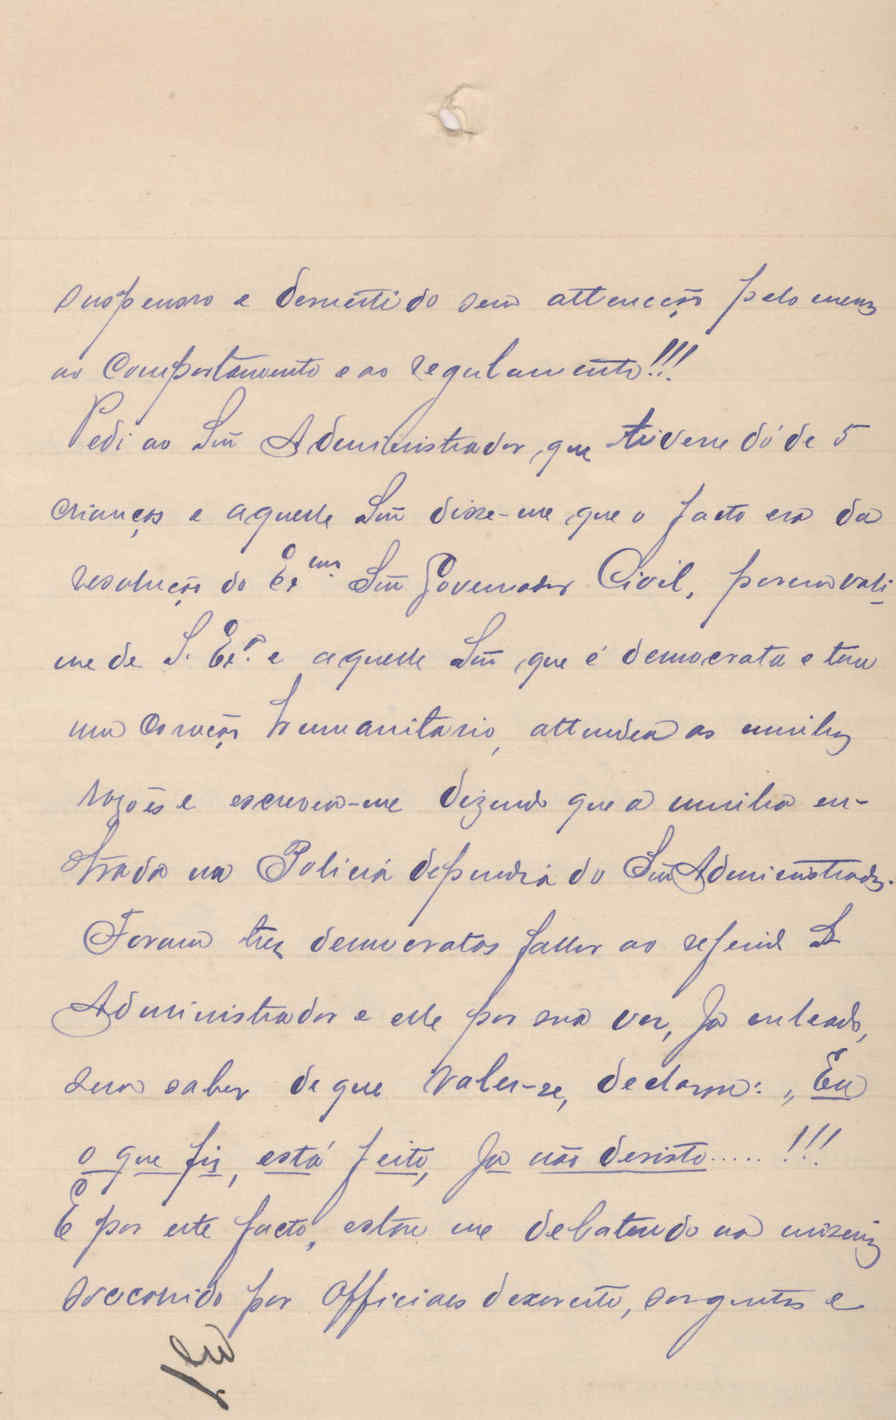 suspenso e demettido sem attencção pelo menos
ao comportamento e ao regulamento!!!
Pedi ao Snr̃ Administrador, que tivesse dó de 5
crianças e aquelle Snr̃ disse-me que o facto era da
resolução do Ex.mo Snr̃ Governador Civil, porem vali-
me de S. Ex.ª e aquelle Snr̃ que é democrata e tem
um coração humanitario, attendeu as minhas
rasões e escreveu-me dizendo que a minha en-
trada na Policia dependia do Snr̃ Administrador.
Foram tres democratas fallar ao referido Sr
Administrador e elle por sua vez, ja enleado,
sem saber de que valer-se, declarou: „ Eu
o que fis, está feito, Ja não desisto..... !!!
E por este facto, estou me debatendo na miseria
soccorrido por officiaes dexercito, sargentos e